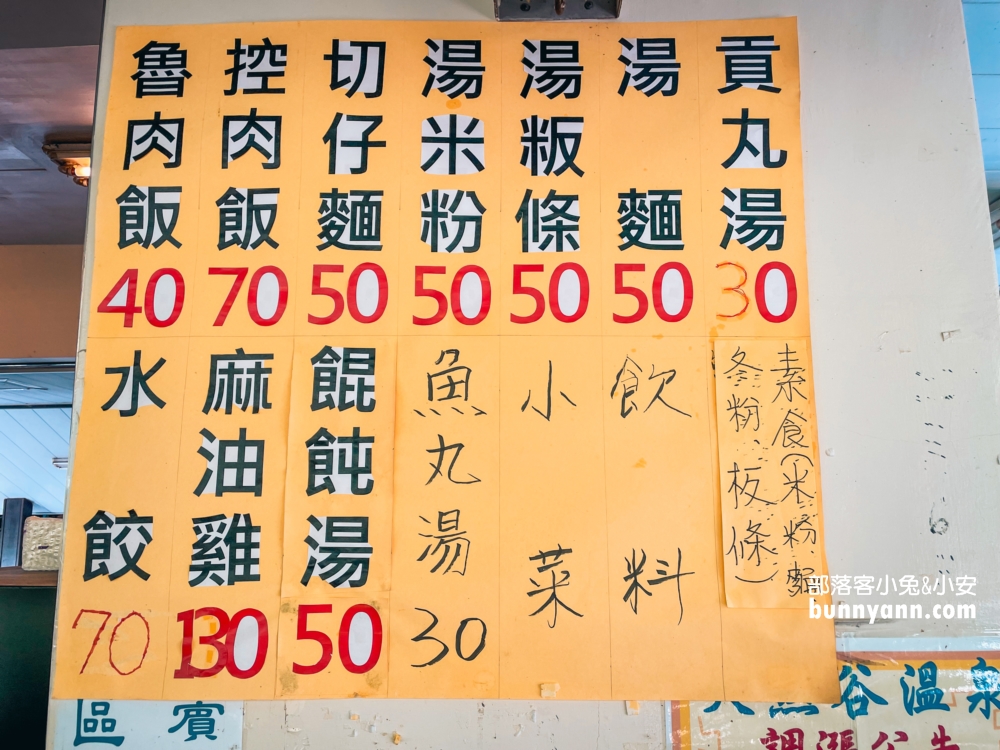 魯肉飯 40
控肉飯 70
切仔麵 50
湯米粉 50
湯粄條 50
湯麵 50
貢丸湯 30
水餃 70
麻油雞 130
餛飩湯 50
魚丸湯 30
小菜
飲料
素食(米粉.麵
冬粉.板條)
部落客小兔&小安
bunnyann.com
區賓
谷溫泉
調漲公告